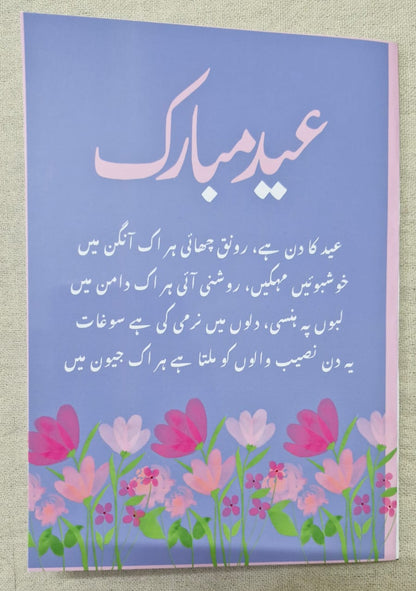 عید مبارک
عید کا دن ہے، رونق چھائی ہر اک آنگن میں
خوشبوئیں مہکیں، روشنی آئی ہر اک دامن میں
لبوں پہ ہنسی، دلوں میں نرمی کی ہے سوغات
یہ دن نصیب والوں کو ملتا ہے ہر اک جیون میں